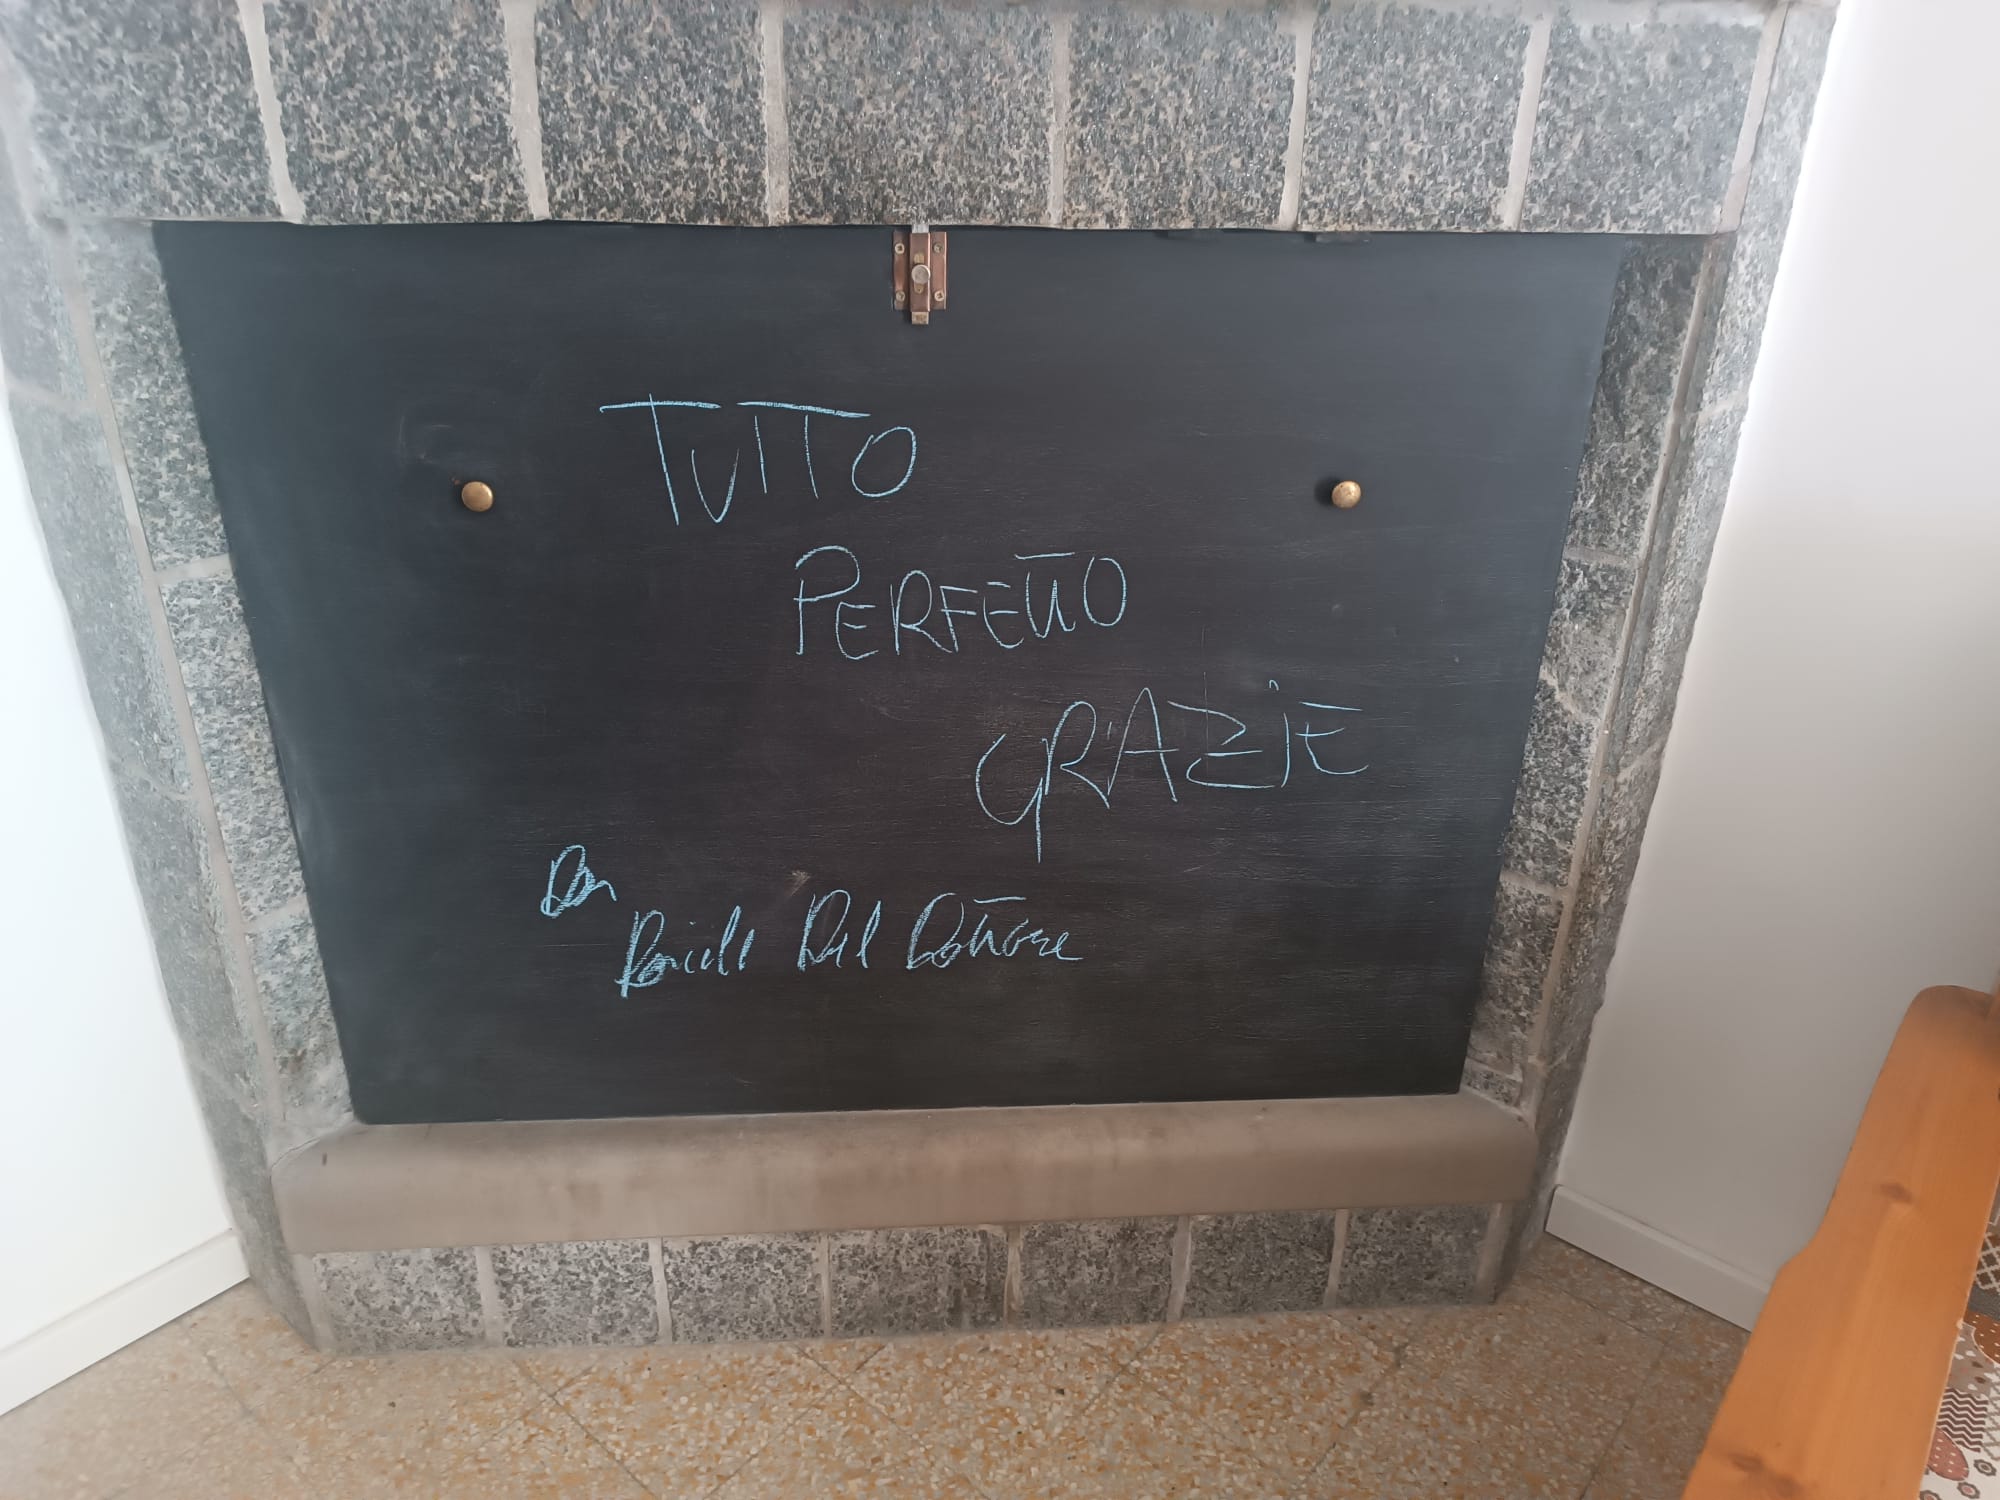 TUTTO
PERFETTO
GRAZIE
Don
Del